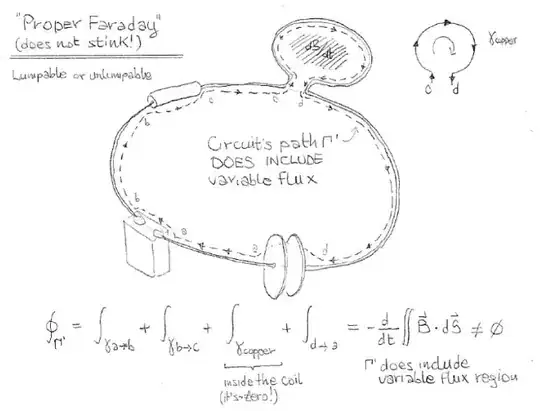 "Proper Faraday"
(does not stink!)
Lumpable or unlumpable
dB
dt
γcopper
c d
c d
b
Circuit's path Γ'
DOES INCLUDE
variable flux
b
a
a
d
∮Γ' = ∫γa→b + ∫γb→c + ∫γcopper + ∫d→a = -d/dt ∬ B⃗ · dS⃗ ≠ ∅
inside the coil
(it's zero!)
Γ' does include
variable flux region